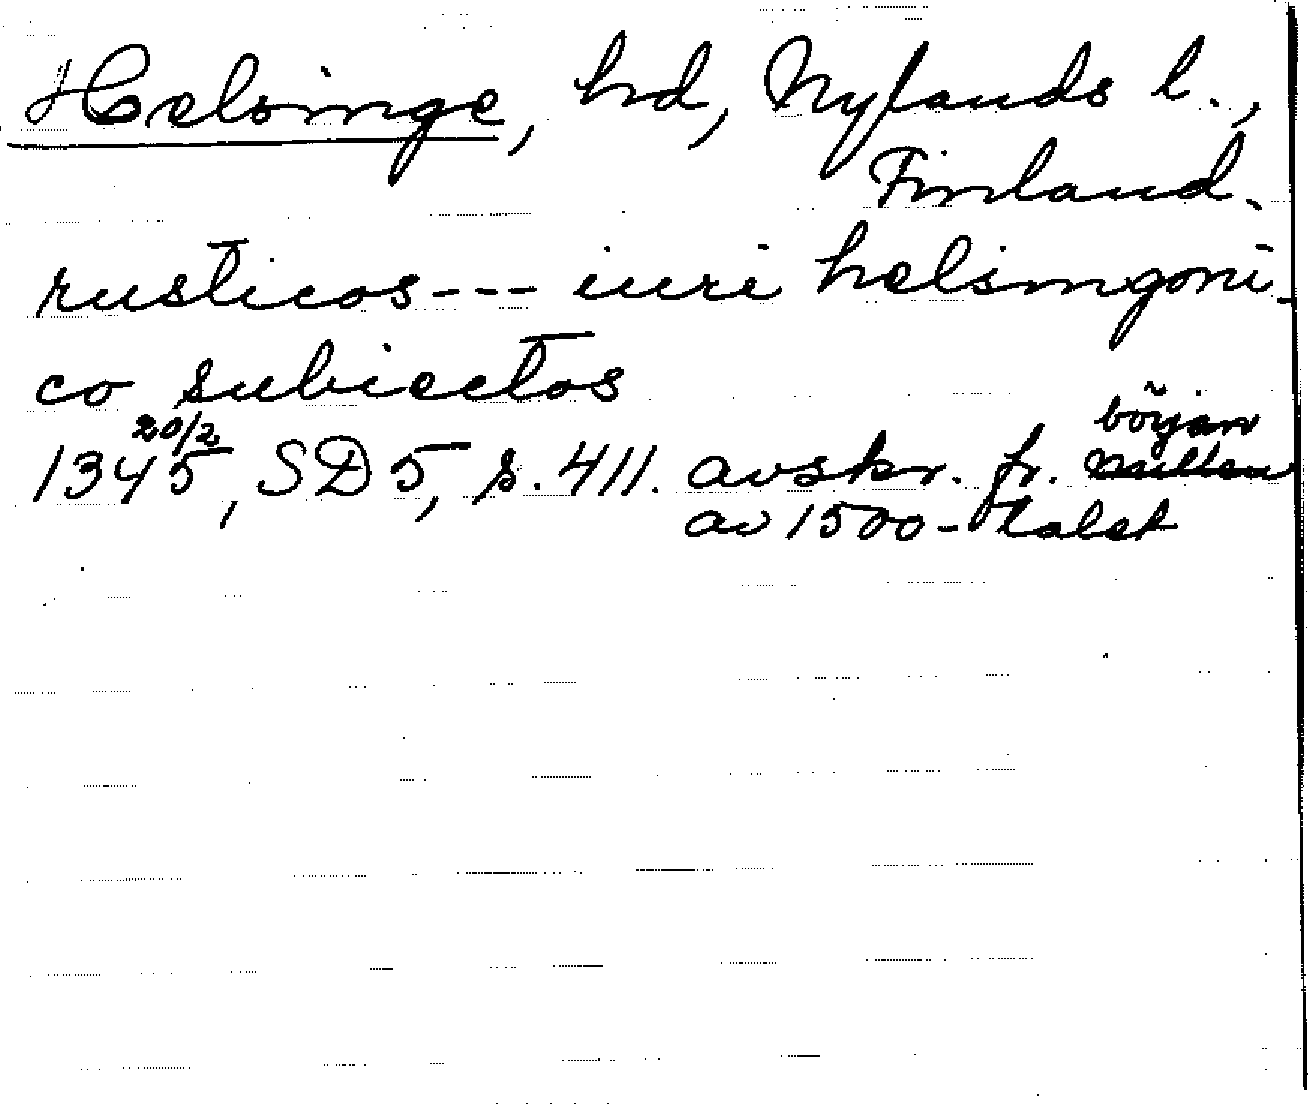 Helsinge, hd, Nylands l.,
Finland.
rusticos --- iuri helsingoni-
co subiectos
20/2 början
1345, SD 5, s. 411. avskr. fr. mitten
av 1500-talet